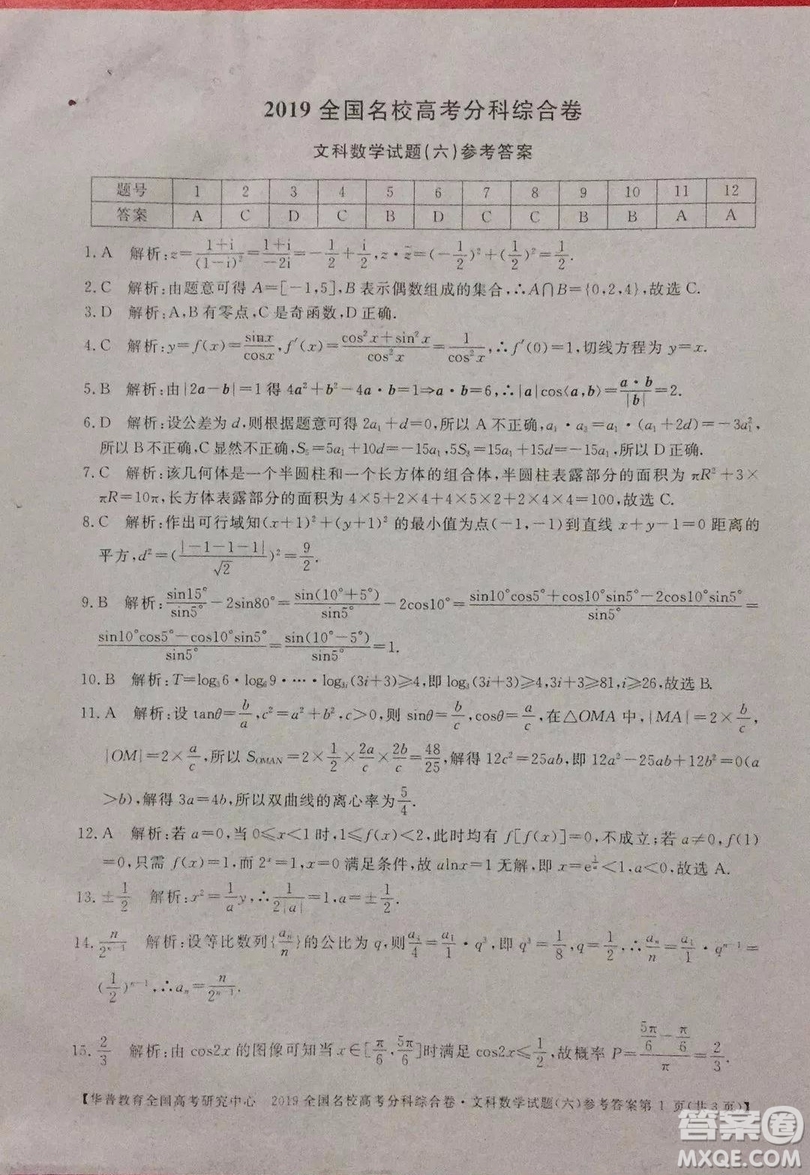 2019 全国名校高考分科综合卷
文科数学试题(六)参考答案
题号 1 2 3 4 5 6 7 8 9 10 11 12
答案 A C D C B D C C B B A A
1. A 解析:z=\frac{1+i}{(1-i)^2}=\frac{1+i}{-2i}=-\frac{1}{2}+\frac{i}{2},z·\bar{z}=(-\frac{1}{2})^2+(\frac{1}{2})^2=\frac{1}{2}.
2. C 解析:由题意可得 A=[-1,5],B 表示偶数组成的集合,∴A∩B={0,2,4},故选 C.
3. D 解析:A,B 有零点,C 是奇函数,D 正确.
4. C 解析:y=f(x)=\frac{sinx}{cosx},f′(x)=\frac{cos^2x+sin^2x}{cos^2x}=\frac{1}{cos^2x},∴f′(0)=1,切线方程为 y=x.
5. B 解析:由|2a-b|=1 得 4a²+b²-4a·b=1⇒a·b=6,∴|a|cos⟨a,b⟩=\frac{a·b}{|b|}=2.
6. D 解析:设公差为 d,则根据题意可得 2a₁+d=0,所以 A 不正确,a₁·a₃=a₁·(a₁+2d)=-3a₁²,
所以 B 不正确,C 显然不正确,S₅=5a₁+10d=-15a₁,5S₃=15a₁+15d=-15a₁,所以 D 正确.
7. C 解析:该几何体是一个半圆柱和一个长方体的组合体,半圆柱表露部分的面积为 πR²+3×
πR=10π,长方体表露部分的面积为 4×5+2×4+4×5×2+2×4×4=100,故选 C.
8. C 解析:作出可行域知(x+1)²+(y+1)² 的最小值为点(-1,-1)到直线 x+y-1=0 距离的
平方,d²=(\frac{|-1-1-1|}{\sqrt{2}})²=\frac{9}{2}.
9. B 解析:\frac{sin15°}{sin5°}-2sin80°=\frac{sin(10°+5°)}{sin5°}-2cos10°=\frac{sin10°cos5°+cos10°sin5°-2cos10°sin5°}{sin5°}=
\frac{sin10°cos5°-cos10°sin5°}{sin5°}=\frac{sin(10°-5°)}{sin5°}=1.
10. B 解析:T=log₃6·log₆9·⋯·log₃ᵢ(3i+3)≥4,即 log₃(3i+3)≥4,3i+3≥81,i≥26,故选 B.
11. A 解析:设 tanθ=\frac{b}{a},c²=a²+b²,c>0,则 sinθ=\frac{b}{c},cosθ=\frac{a}{c},在△OMA 中,|MA|=2×\frac{b}{c},
|OM|=2×\frac{a}{c},所以 S_{OMAN}=2×\frac{1}{2}×\frac{2a}{c}×\frac{2b}{c}=\frac{48}{25},解得 12c²=25ab,即 12a²-25ab+12b²=0(a
>b),解得 3a=4b,所以双曲线的离心率为\frac{5}{4}.
12. A 解析:若 a=0,当 0≤x<1 时,1≤f(x)<2,此时均有 f[f(x)]=0,不成立;若 a≠0,f(1)
=0,只需 f(x)=1,而 2ˣ=1,x=0 满足条件,故 alnx=1 无解,即 x=e^{\frac{1}{a}}<1,a<0,故选 A.
13. ±\frac{1}{2} 解析:x²=\frac{1}{a}y,∴\frac{1}{2|a|}=1,a=±\frac{1}{2}.
14. \frac{n}{2^{n-1}} 解析:设等比数列{\frac{a_n}{n}}的公比为 q,则\frac{a_4}{4}=\frac{a_1}{1}·q³,即 q³=\frac{1}{8},q=\frac{1}{2},∴\frac{a_n}{n}=\frac{a_1}{1}·q^{n-1}=
(\frac{1}{2})^{n-1},∴a_n=\frac{n}{2^{n-1}}.
15. \frac{2}{3} 解析:由 cos2x 的图像可知当 x∈[\frac{π}{6},\frac{5π}{6}]时满足 cos2x≤\frac{1}{2},故概率 P=\frac{\frac{5π}{6}-\frac{π}{6}}{π}=\frac{2}{3}.
【华普教育全国高考研究中心 2019 全国名校高考分科综合卷·文科数学试题(六)参考答案第 1 页(共 3 页)】
答案圈
MXQE.COM